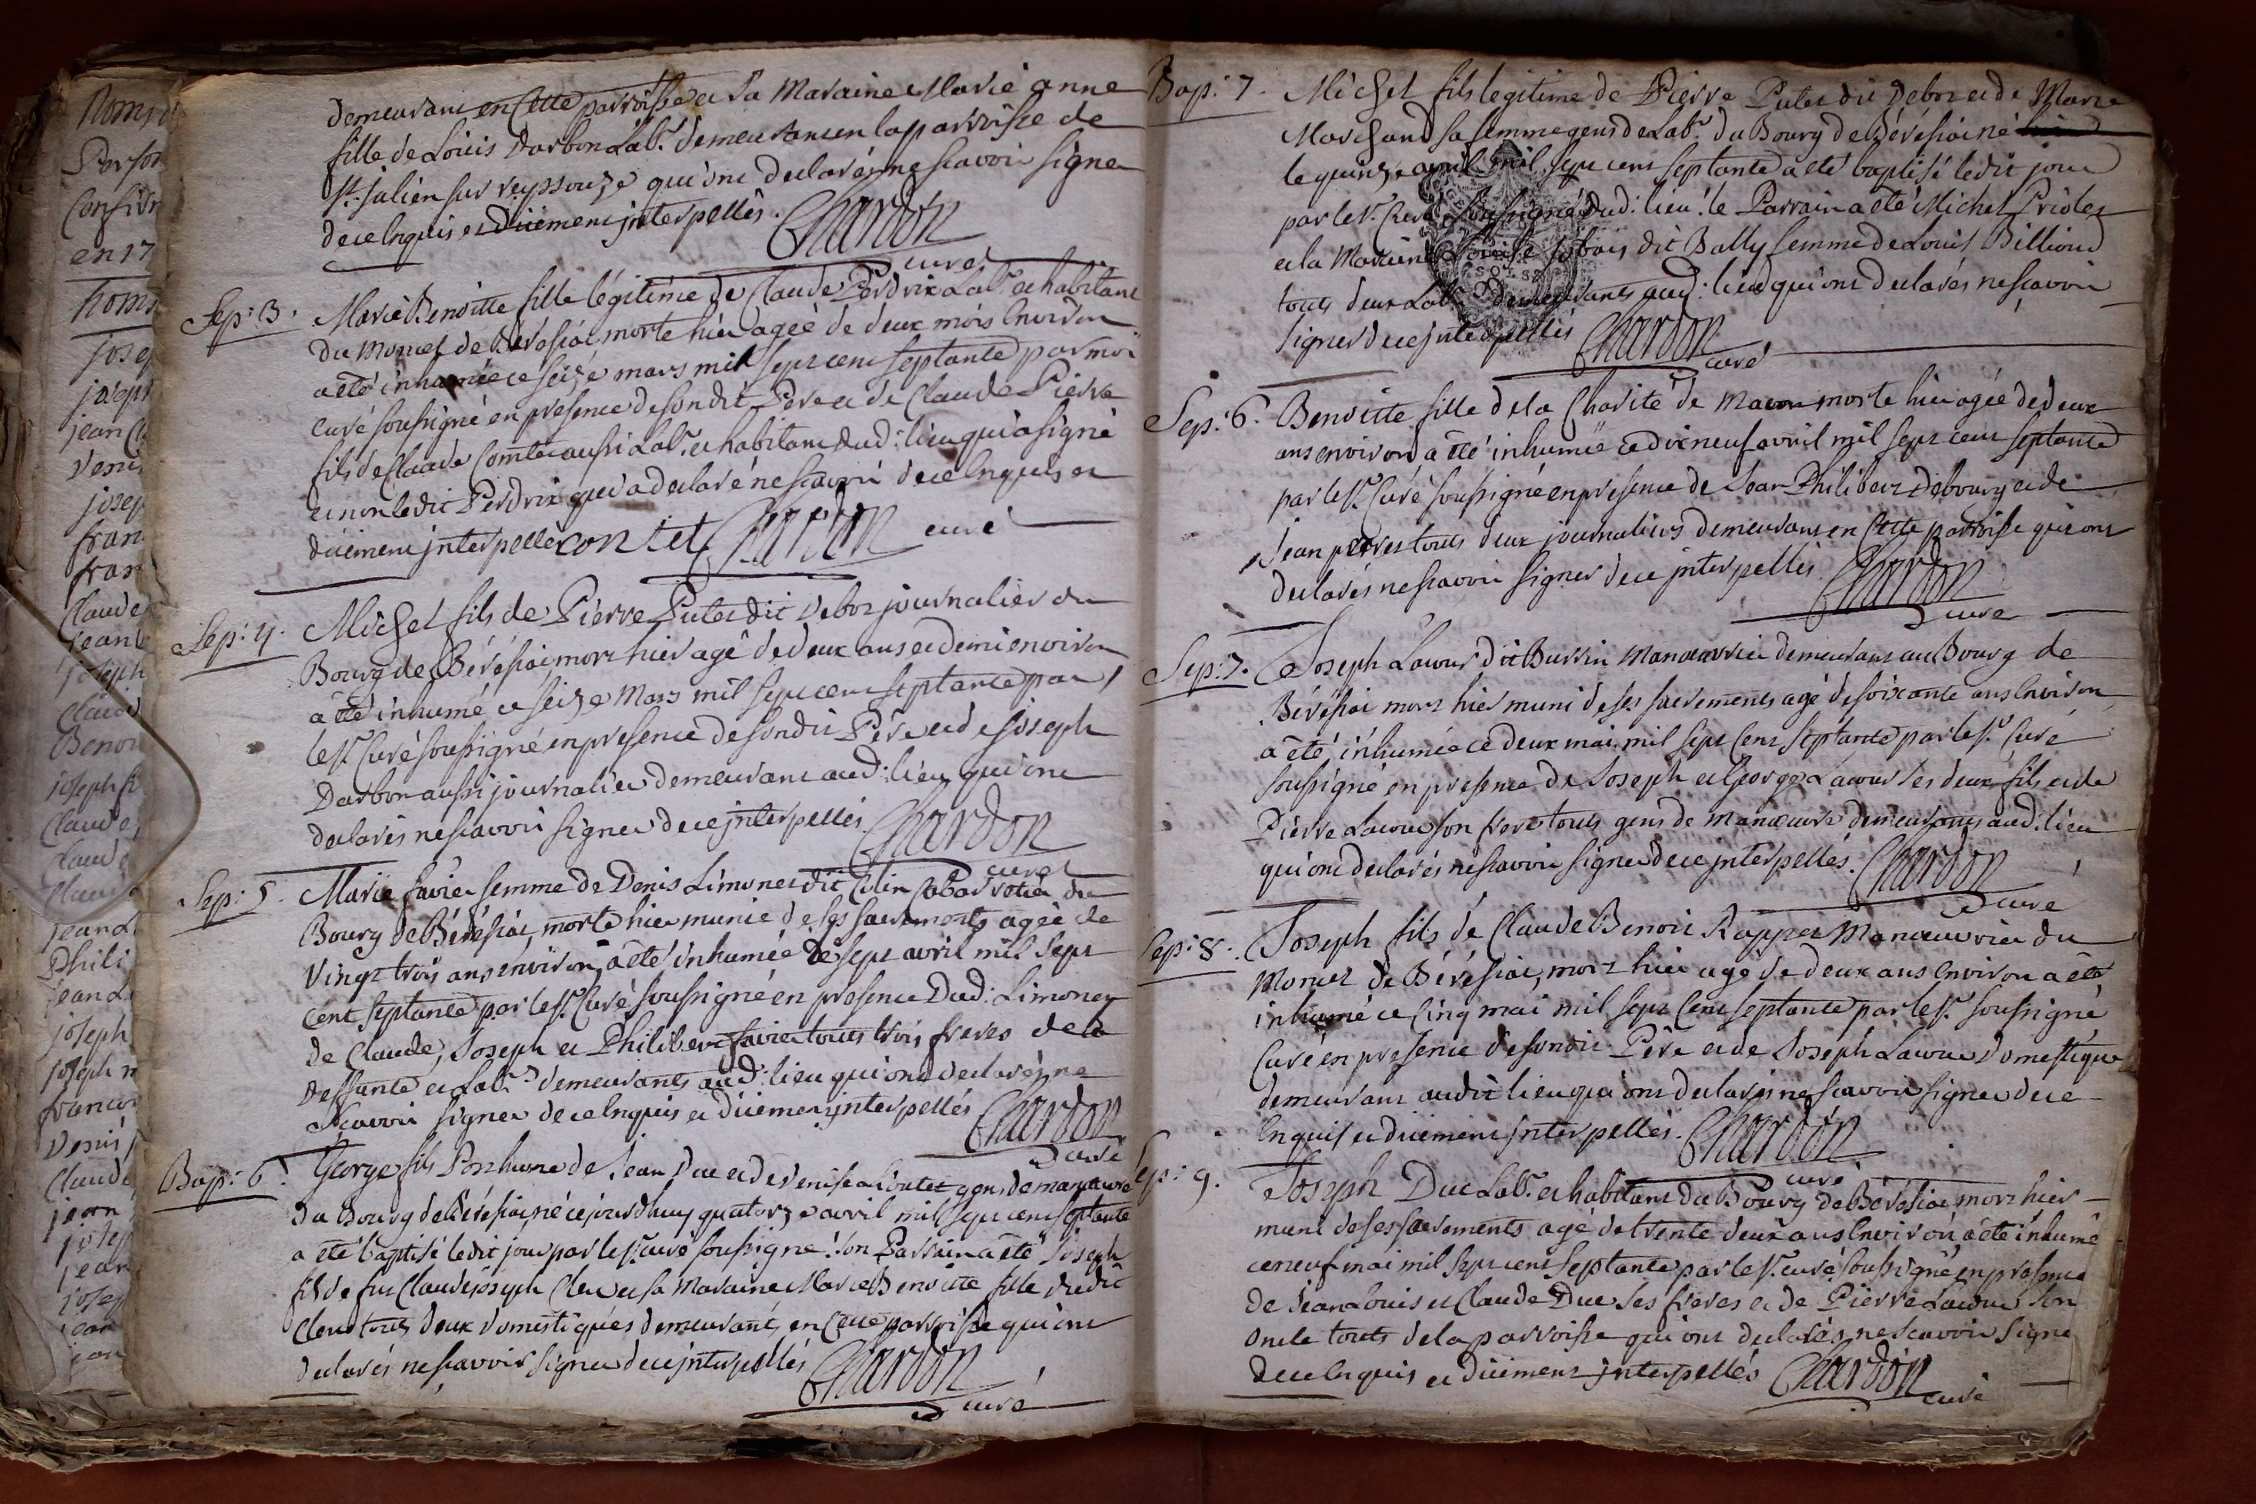 demeurant en Cette parroisse et Sa Maraine Marie anne
fille de Louis Darbon Labr. demeurant en la parroisse de
st. julien sur reyssouze qui ont declarés ne scavoir signer
de ce enquis et düement jnterpellés. Chardon
curé
Sep: 3. Marie Benoitte fille légitime de Claude Perdrix Labr. et habitant
du Moncel de Béréssiat morte hier agée de deux mois Environ
a été inhumée ce seize mars mil sept cent septante par moi
curé soussigné en presence de son dit Pere et de Claude Pierre
fils de Claude Comte aussi Labr. et habitant dud: lieu qui a signé
et non ledit Perdrix qui a declaré ne scavoir de ce Enquis et
düement jnterpellé contet Chardon curé
Sep: 4. Michel fils de Pierre Putet dit debor journalier du
Bourg de Béréssiat mort hier agé de deux ans et demi environ
a été inhumé ce seize Mars mil sept cent septante par
le Sr. Curé soussigné en presence de son dit Pére et de Joseph
Darbon aussi journalier demeurant aud: lieu qui ont
declarés ne scavoir signer de ce jnterpellés Chardon
curé
Sep: 5. Marie favier femme de Denis Limonet dit Colin Cabarrotier du
Bourg de Béréssiat, morte hier munie de ses sacrements agée de
vingt trois ans environ, a été inhumée le sept avril mil sept
cent septante par le Sr. Curé soussigné en presence Dud: Limonet
de Claude, Joseph et Philibert favier touts trois freres de la
deffunte et Labrs. demeurants aud: lieu qui ont declarés ne
scavoir signer de ce Enquis et düement jnterpellés Chardon
curé
Bap: 6. George fils Posthume de Jean Duc et de denise Loutet gens de manœuvre
du Bourg de Béréssiat, né ce jourdhuy quatorze avril mil sept cent septante
a été baptisé ledit jour par le Sr. curé soussigné. Son Parrain a été Joseph
fils de feu Claude joseph Clere et sa Maraine Marie Benoitte fille dudit
Clere touts deux domestiques demeurants en cette parroisse qui ont
declarés ne scavoir signer de ce jnterpellés Chardon
curé
Bap: 7. Michel fils legitime de Pierre Putet dit debor et de Marie
Marchand sa femme gens de Labr. du Bourg de Béréssiat né
le quinze avril mil sept cent septante a été baptisé ledit jour
par le Sr. Curé soussigné dud: lieu. le Parrain a été Michel Priolet
et la Maraine Louise dubois dit Bally femme de Louis Billioud
touts deux Labr. demeurants aud: lieu qui ont declarés ne scavoir
signer de ce jnterpellés Chardon
curé
Sep: 6. Benoitte fille de la Charité de Macon morte hier agée de deux
ans environ a été inhumée ce dix neuf avril mil sept cent septante
par le Sr. Curé soussigné en presence de Jean Philibert Debourg et de
Jean perret touts deux journaliers demeurant en Cette parroisse qui ont
declarés ne scavoir signer de ce jnterpellés Chardon
curé
Sep: 7. Joseph Lacour dit Burrin Manœuvrier demeurant au Bourg de
Béréssiat mort hier muni de ses sacrements agé de soixante ans Environ
a été inhumé ce deux mai mil sept Cent septante par le Sr. Curé
soussigné en presence de Joseph et George Lacour ses deux fils et de
Pierre Lacour son frere touts gens de manœuvre demeurants aud: lieu
qui ont declarés ne scavoir signer de ce jnterpellés. Chardon
curé
Sep: 8. Joseph fils de Claude Benoit Rappet Manœuvrier du
Moncel de Béréssiat, mort hier agé de deux ans Environ a été
inhumé ce Cinq mai mil sept Cent septante par le Sr. soussigné
Curé en presence de son dit Pére et de Joseph Lacour domestique
demeurant audit lieu qui ont declarés ne scavoir signer de ce
Enquis et düement jnterpellés. Chardon
curé
Sep: 9. Joseph Duc Labr. et habitant du Bourg de Béréssiat mort hier
muni de ses sacrements agé de trente deux ans Environ a été inhumé
ce neuf mai mil sept cent septante par le Sr. curé soussigné en presence
de Jean Louis et Claude Duc ses freres et de Pierre Lacour son
oncle touts de la parroisse qui ont declarés ne scavoir signe
de ce Enquis et düement jnterpellés Chardon
curé